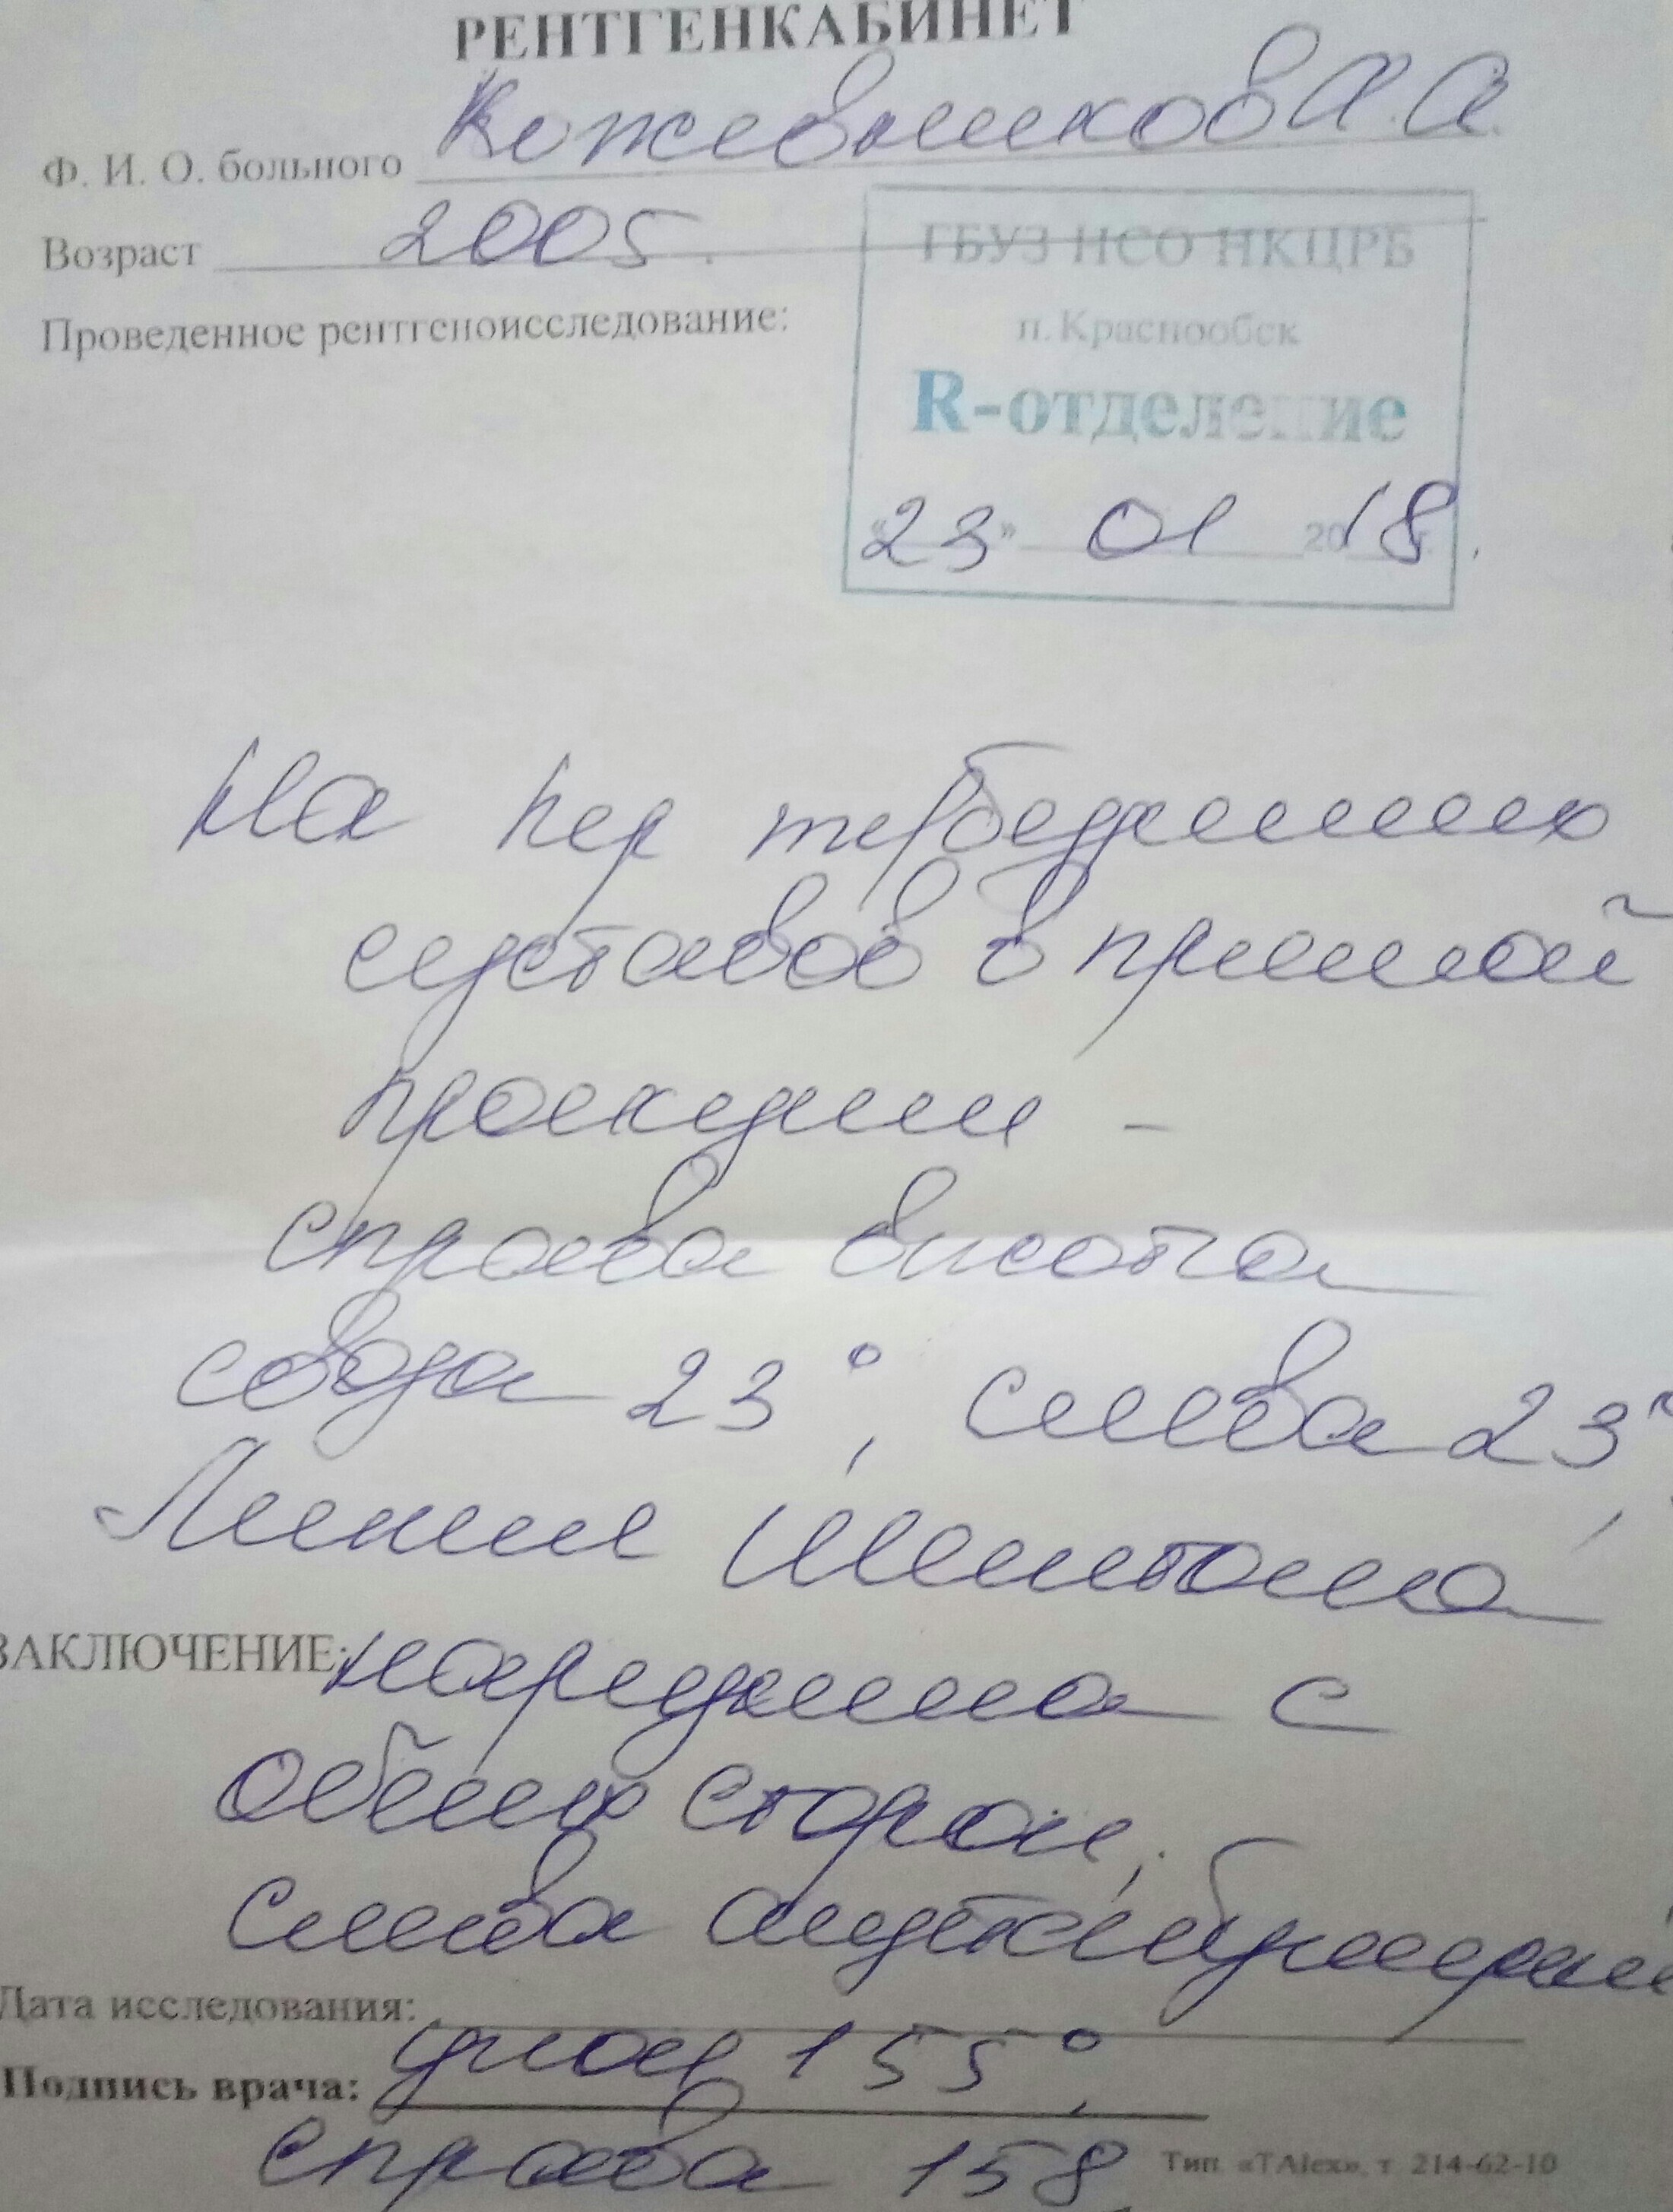 РЕНТГЕНКАБИНЕТ
Ф. И. О. больного Кожевников А. А.
Возраст 2005.
Проведенное рентгеноисследование:
ГБУЗ НСО НКЦРБ
п. Краснообск
R-отделение
«23» 01 2018.
На тазобедренных
суставов в прямой
проекции –
справа высота
свода 23°, слева 23°,
Линия Шентона
ЗАКЛЮЧЕНИЕ: нарушена с
обеих сторон,
слева
Дата исследования:
угол 155°,
Подпись врача:
справа 158
Тип. «TAlex», т. 214-62-10